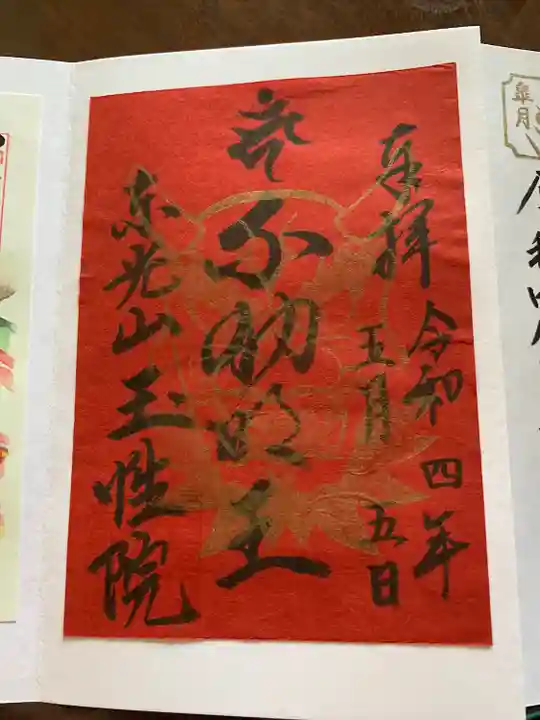 奉拝
令和四年
五月
五日
不動明王
東光山玉性院
皐月